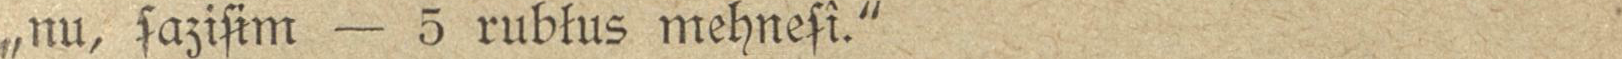 „nu, ſaziſim — 5 rubłus mehneſî.“